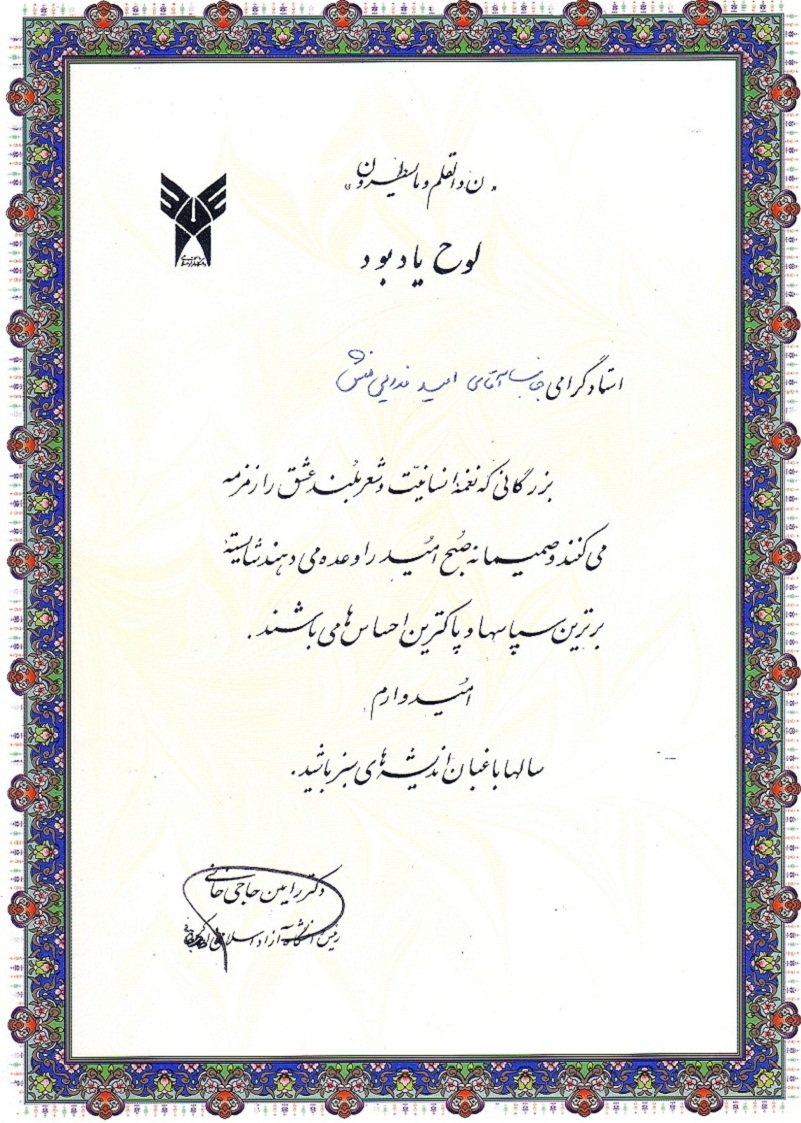 «ن والقلم و ما یسطرون»
لوح یادبود
استاد گرامی جناب آقای امید فدایی منش
بزرگانی که نغمهٔ انسانیّت و شعر بلند عشق را زمزمه
می کنند و صمیمانه صُبح امُید را وعده می دهند شایستهٔ
برترین سپاسها و پاکترین احساس ها می باشند.
امُیدوارم
سالها باغبان اندیشه های سبز باشید.
دکتر رامین حاجی خانی
رئیس دانشگاه آزاد اسلامی